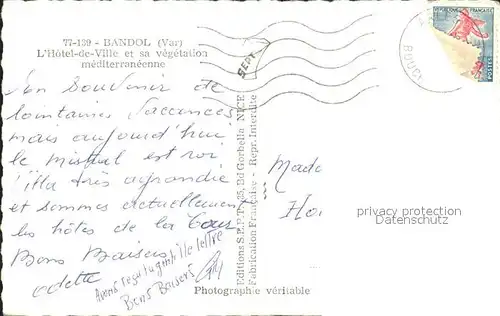 77-139 - BANDOL (Var)
L'Hôtel-de-Ville et sa végétation
méditerranéenne
SEPT
REPUBLIQUE FRANÇAISE
POSTES
BOUCH
souvenir de
lointaines vacances
mais aujourd'hui
le mistral est roi
très agrandie
et sommes actuellement
les hôtes de la
Bons Baisers
Odette
Avons reçu ta gentille lettre
Bons Baisers
Editions S.E.P.T., 25, Bd Gorbella NICE
Fabrication Française - Repr. Interdite
Mada
Photographie véritable
privacy protection
Datenschutz